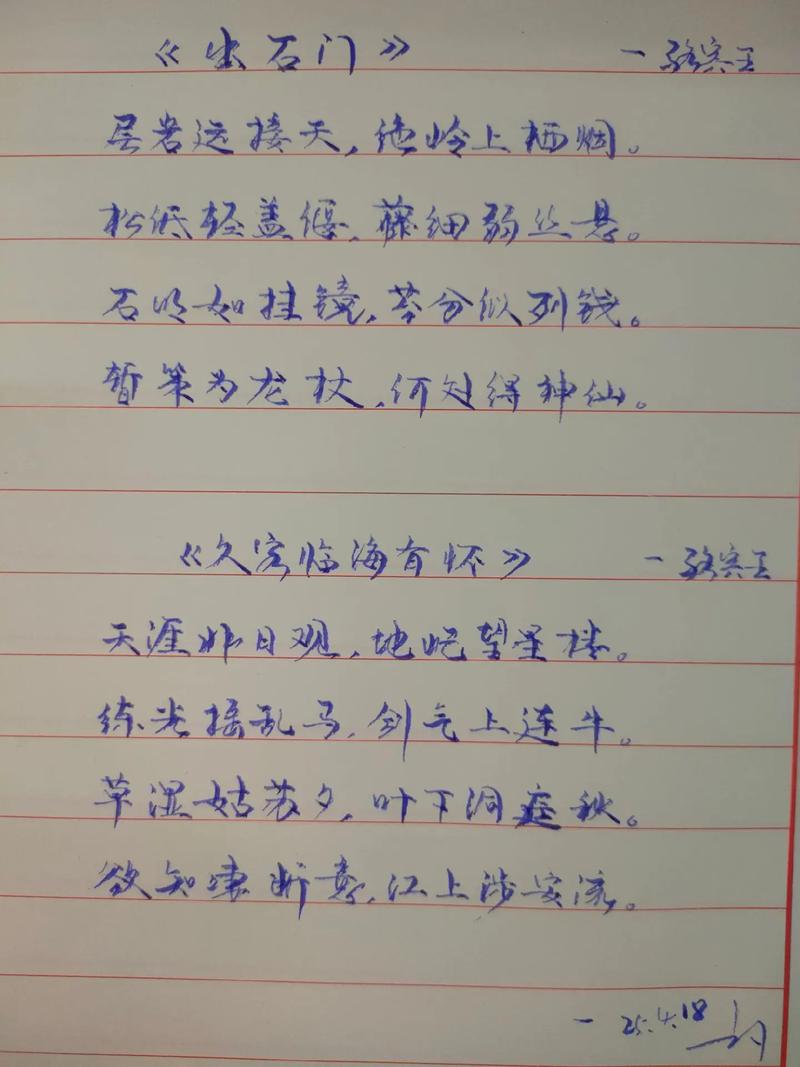 《出石门》 一骆宾王
层岩远接天,绝岭上栖烟。
松低轻盖偃,藤细弱丝悬。
石明如挂镜,苔分似列钱。
暂策为龙杖,何处得神仙。
《久客临海有怀》 一骆宾王
天涯非日观,地屺望星楼。
练光摇乱马,剑气上连牛。
草湿姑苏夕,叶下洞庭秋。
欲知凄断意,江上涉安流。
一 25.4.18